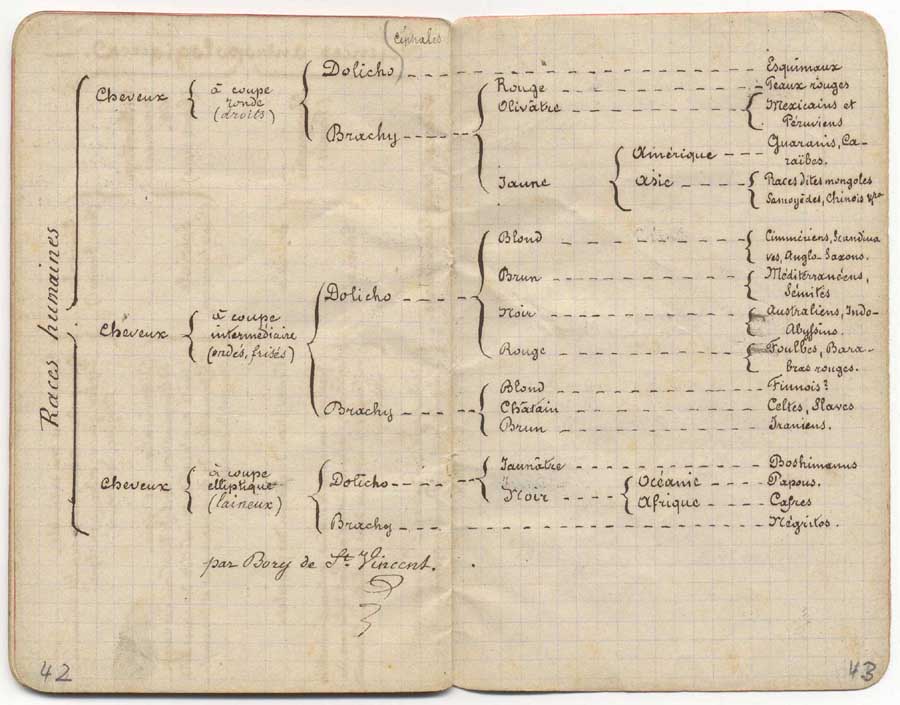 céphales
Races humaines
Cheveux à coupe ronde (droits)
Dolicho Esquimaux
Brachy
Rouge Peaux rouges
Olivâtre Mexicains et
Péruviens
Jaune
Amérique Guaranis, Ca-
raïbes.
Asie Races dites mongoles
Samoyèdes, Chinois &ra
Cheveux à coupe intermédiaire (ondés, frisés)
Dolicho
Blond Cimmériens, Scandina
ves, Anglo-Saxons.
Brun Méditerranéens,
Sémites
Noir Australiens, Indo-
Abyssins.
Rouge Foulbes, Bara-
bras rouges.
Brachy
Blond Finnois?
Châtain Celtes, Slaves
Brun Iraniens.
Cheveux à coupe elliptique (laineux)
Dolicho
Jaunâtre Boshimanns
Noir
Océanie Papous.
Afrique Cafres
Brachy Négritos.
par Bory de St. Vincent.
42
43